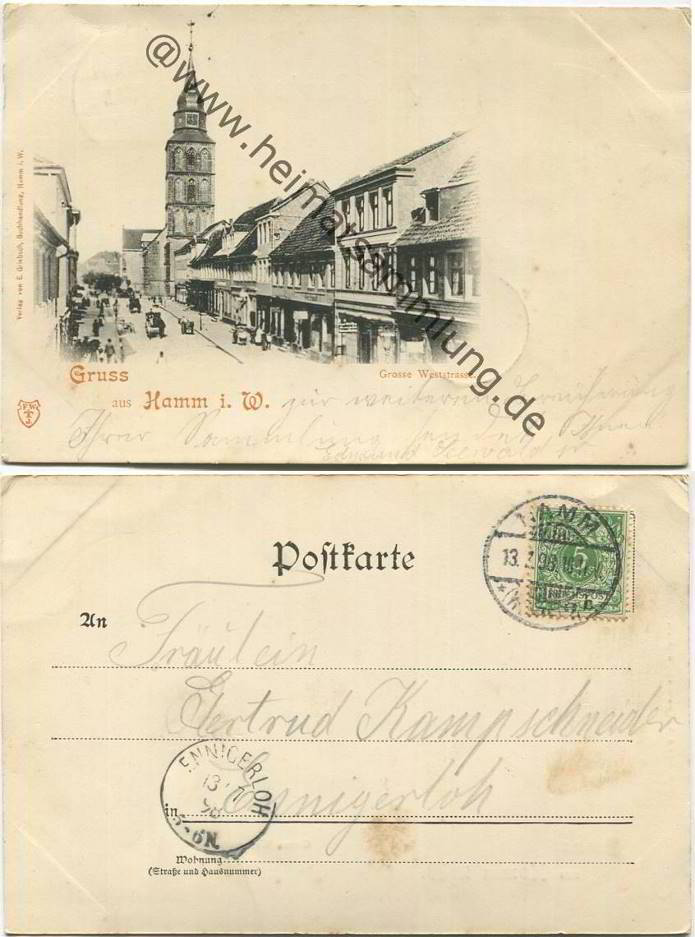 @www.heimatsammlung.de
Verlag von E. Griebsch, Buchhandlung, Hamm i. W.
Gruss
aus Hamm i. W.
Grosse Weststrasse.
zur weiteren
Ihrer Sammlung sendet Ihnen
Seewald
Postkarte
HAMM
13.
5
An
Fräulein
Gertrud Kampschneider
in Ennigerloh
ENNIGERLOH
13
5-6N.
Wohnung
(Straße und Hausnummer)